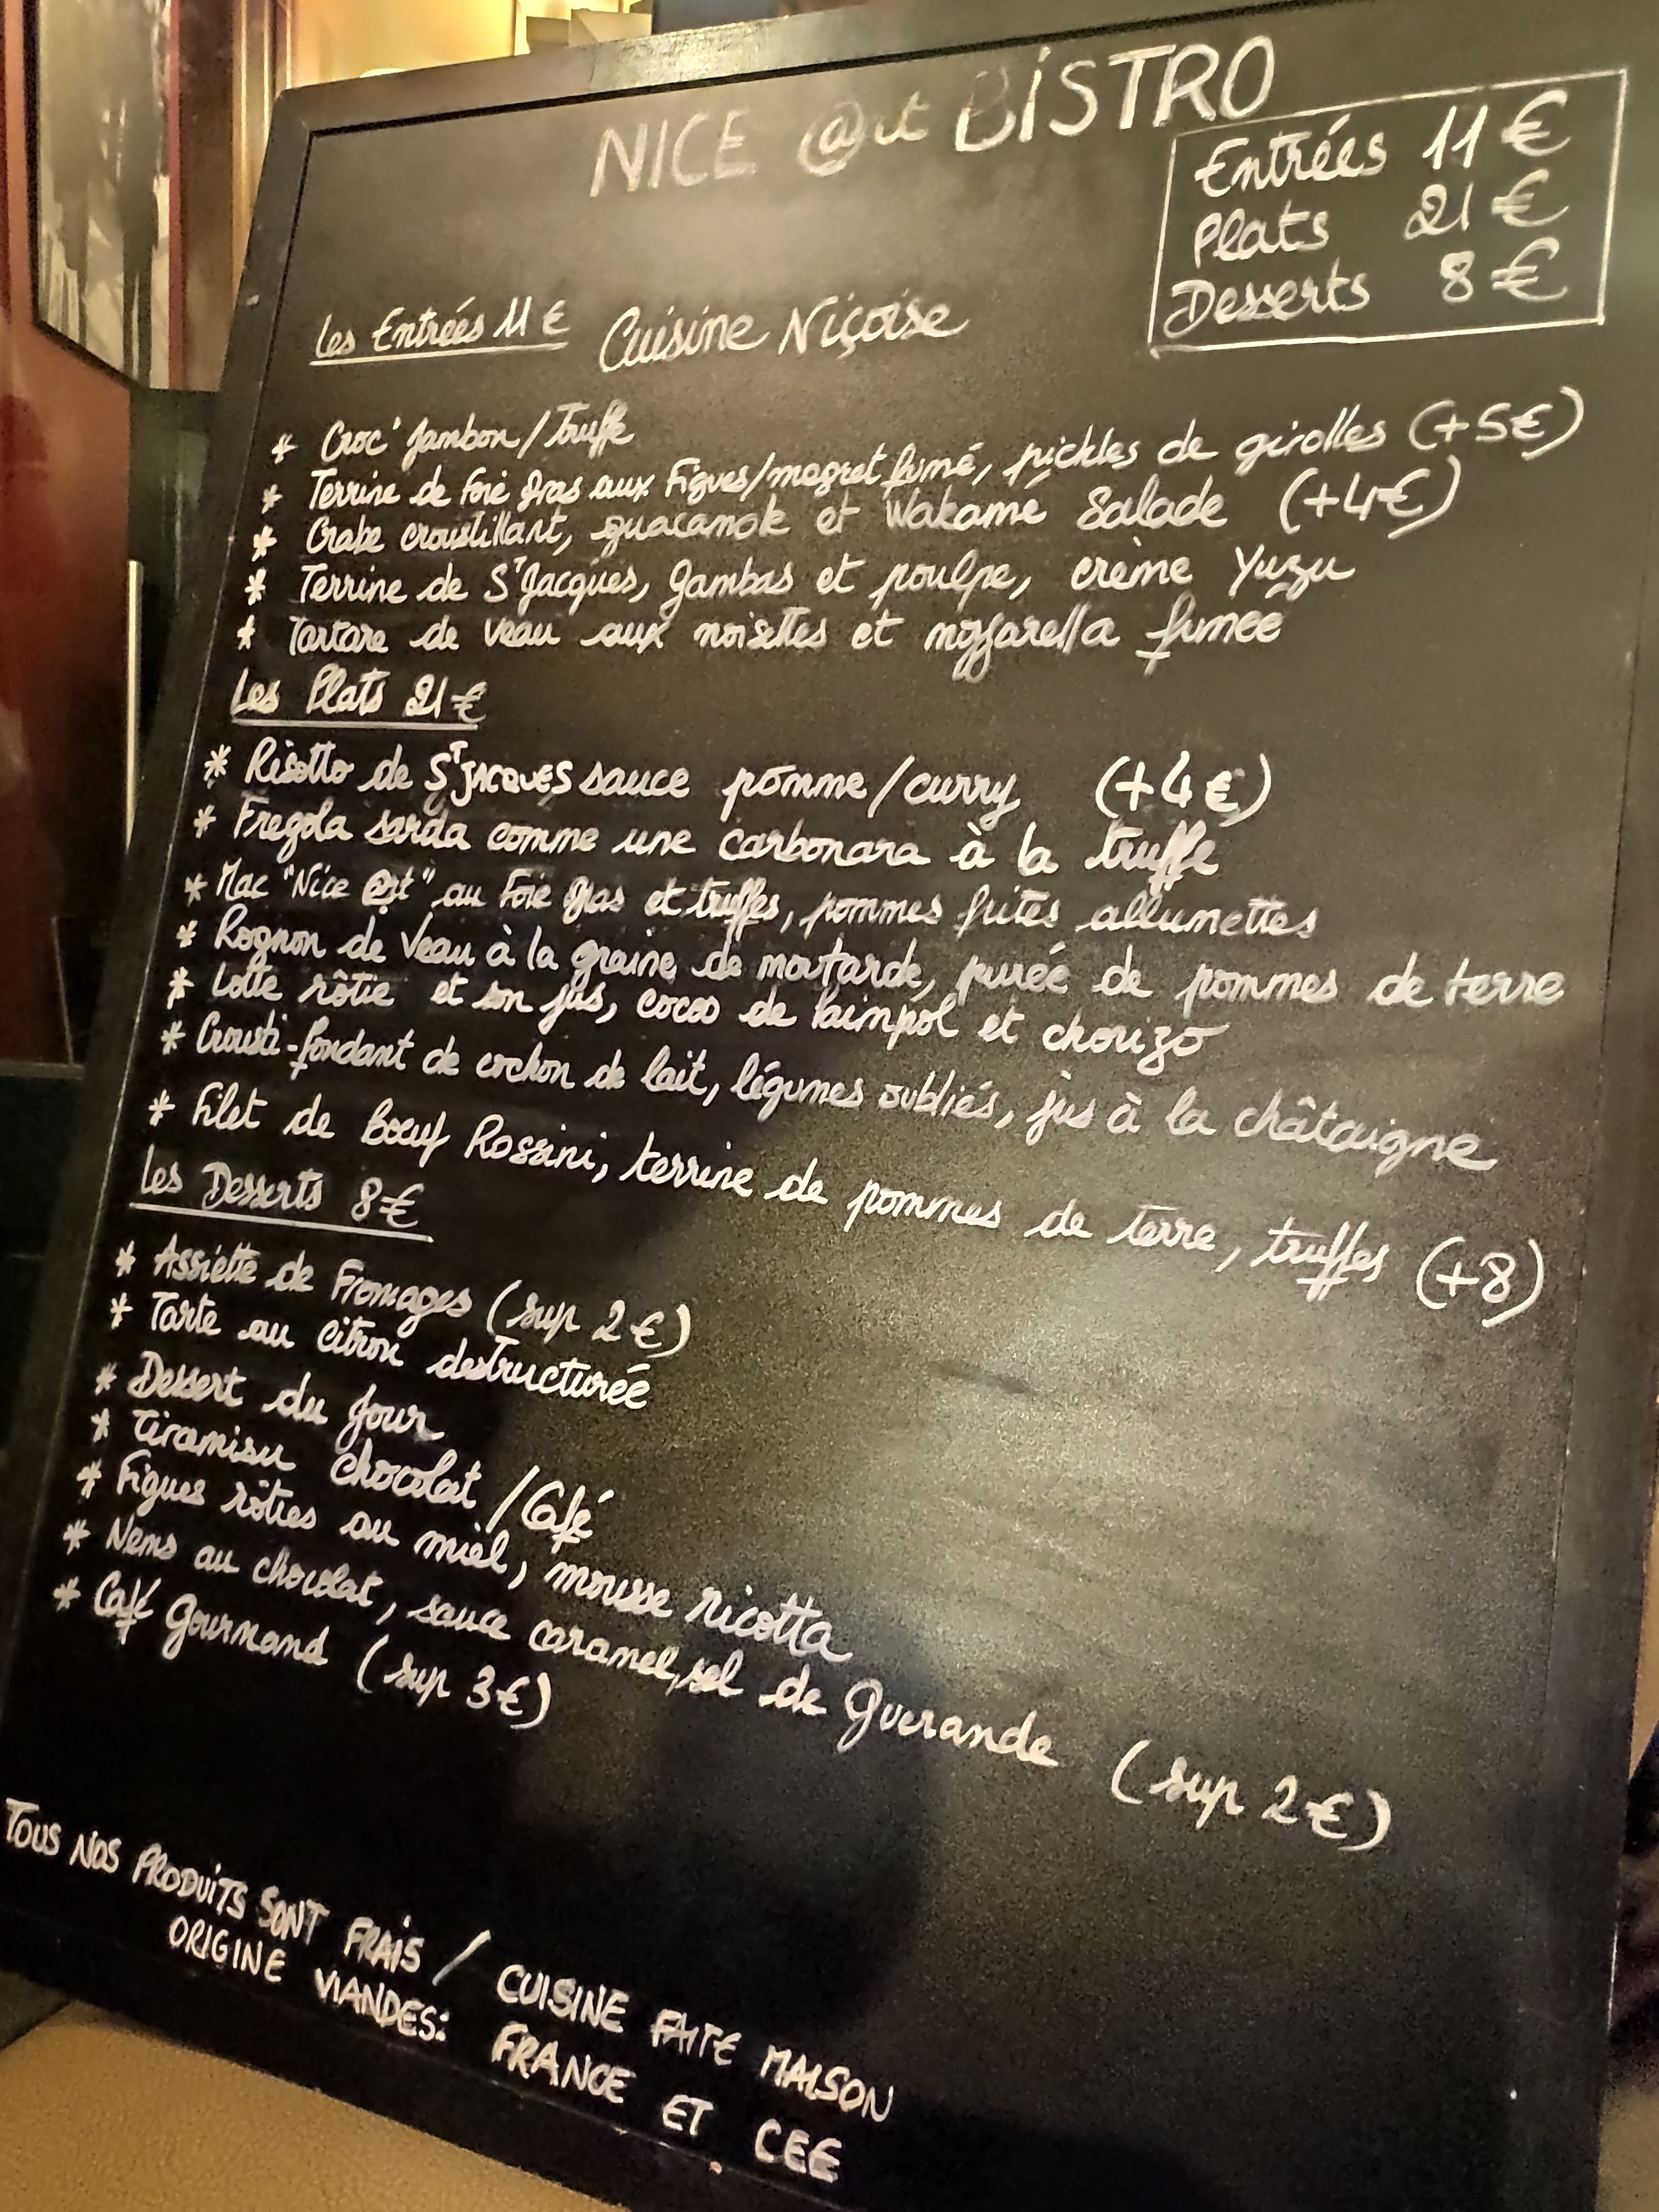 NICE @rt BISTRO
Entrées 11 €
Plats 21 €
Desserts 8 €
Les Entrées 11 € Cuisine Niçoise
* Croc' Jambon/Truffe
* Terrine de Foie Gras aux Figues/magret fumé, pickles de girolles (+5€)
* Crabe croustillant, guacamole et Wakamé Salade (+4€)
* Terrine de ST Jacques, Gambas et poulpe, crème Yuzu
* Tartare de veau aux noisettes et mozzarella fumée
Les Plats 21 €
* Risotto de ST JACQUES sauce pomme/curry (+4€)
* Fregola sarda comme une carbonara à la truffe
* Mac "Nice @rt" au Foie Gras et truffes, pommes frites allumettes
* Rognon de Veau à la graine de moutarde, purée de pommes de terre
* Lotte rôtie et son jus, cocos de Paimpol et chorizo
* Crousti-fondant de cochon de lait, légumes oubliés, jus à la châtaigne
* Filet de Boeuf Rossini, terrine de pommes de terre, truffes (+8)
Les Desserts 8€
* Assiette de Fromages (sup 2€)
* Tarte au citron destructurée
* Dessert du Jour
* Tiramisu chocolat/Café
* Figues rôties au miel, mousse ricotta
* Nems au chocolat, sauce caramel, sel de Guerande (sup 2€)
* Café Gourmand (sup 3€)
TOUS NOS PRODUITS SONT FRAIS / CUISINE FAITE MAISON
ORIGINE VIANDES: FRANCE ET CEE